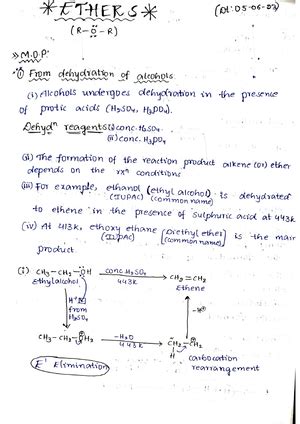 *ETHERS*
(Dt: 05-06-23)
(R-Ö-R)
» M.O.P:
*(1) From dehydration of alcohols
(i) Alcohols undergoes dehydration in the presence
of protic acids (H₂SO₄, H₃PO₄).
Dehydⁿ reagents: (i) conc. H₂SO₄
(ii) conc. H₃PO₄
(ii) The formation of the reaction product alkene (or) ether
depends on the rxⁿ conditions
(iii) For example, ethanol (ethyl alcohol) is dehydrated
(IUPAC) (common name)
to ethene in the presence of sulphuric acid at 443K
(iv) At 413K, ethoxy ethane (Diethyl ether) is the main
(IUPAC) (common name)
product.
(i) CH₃-CH₂-ÖH conc. H₂SO₄ 443K CH₂=CH₂
Ethyl alcohol Ethene
H⁺ from H₂SO₄ -H⁺
CH₃-CH₂-OH₂ -H₂O 443K CH₂-CH₂
H
carbocation
rearrangement
E¹ Elimination